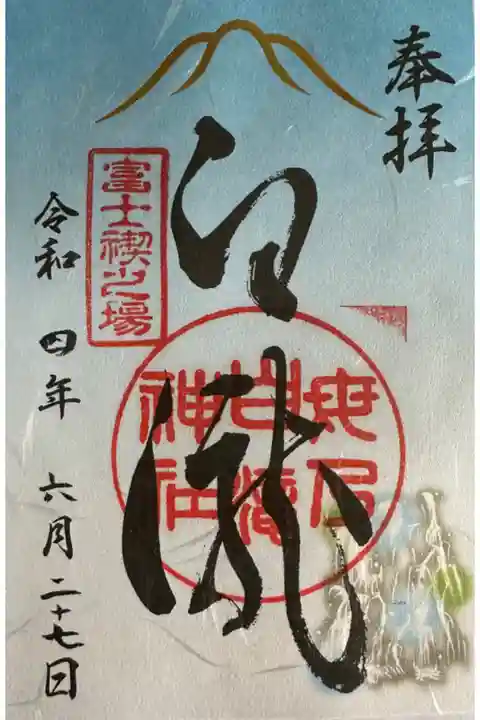 奉拝
白瀧
白滝
神社
富士禊之場
令和 四年 六月二十七日